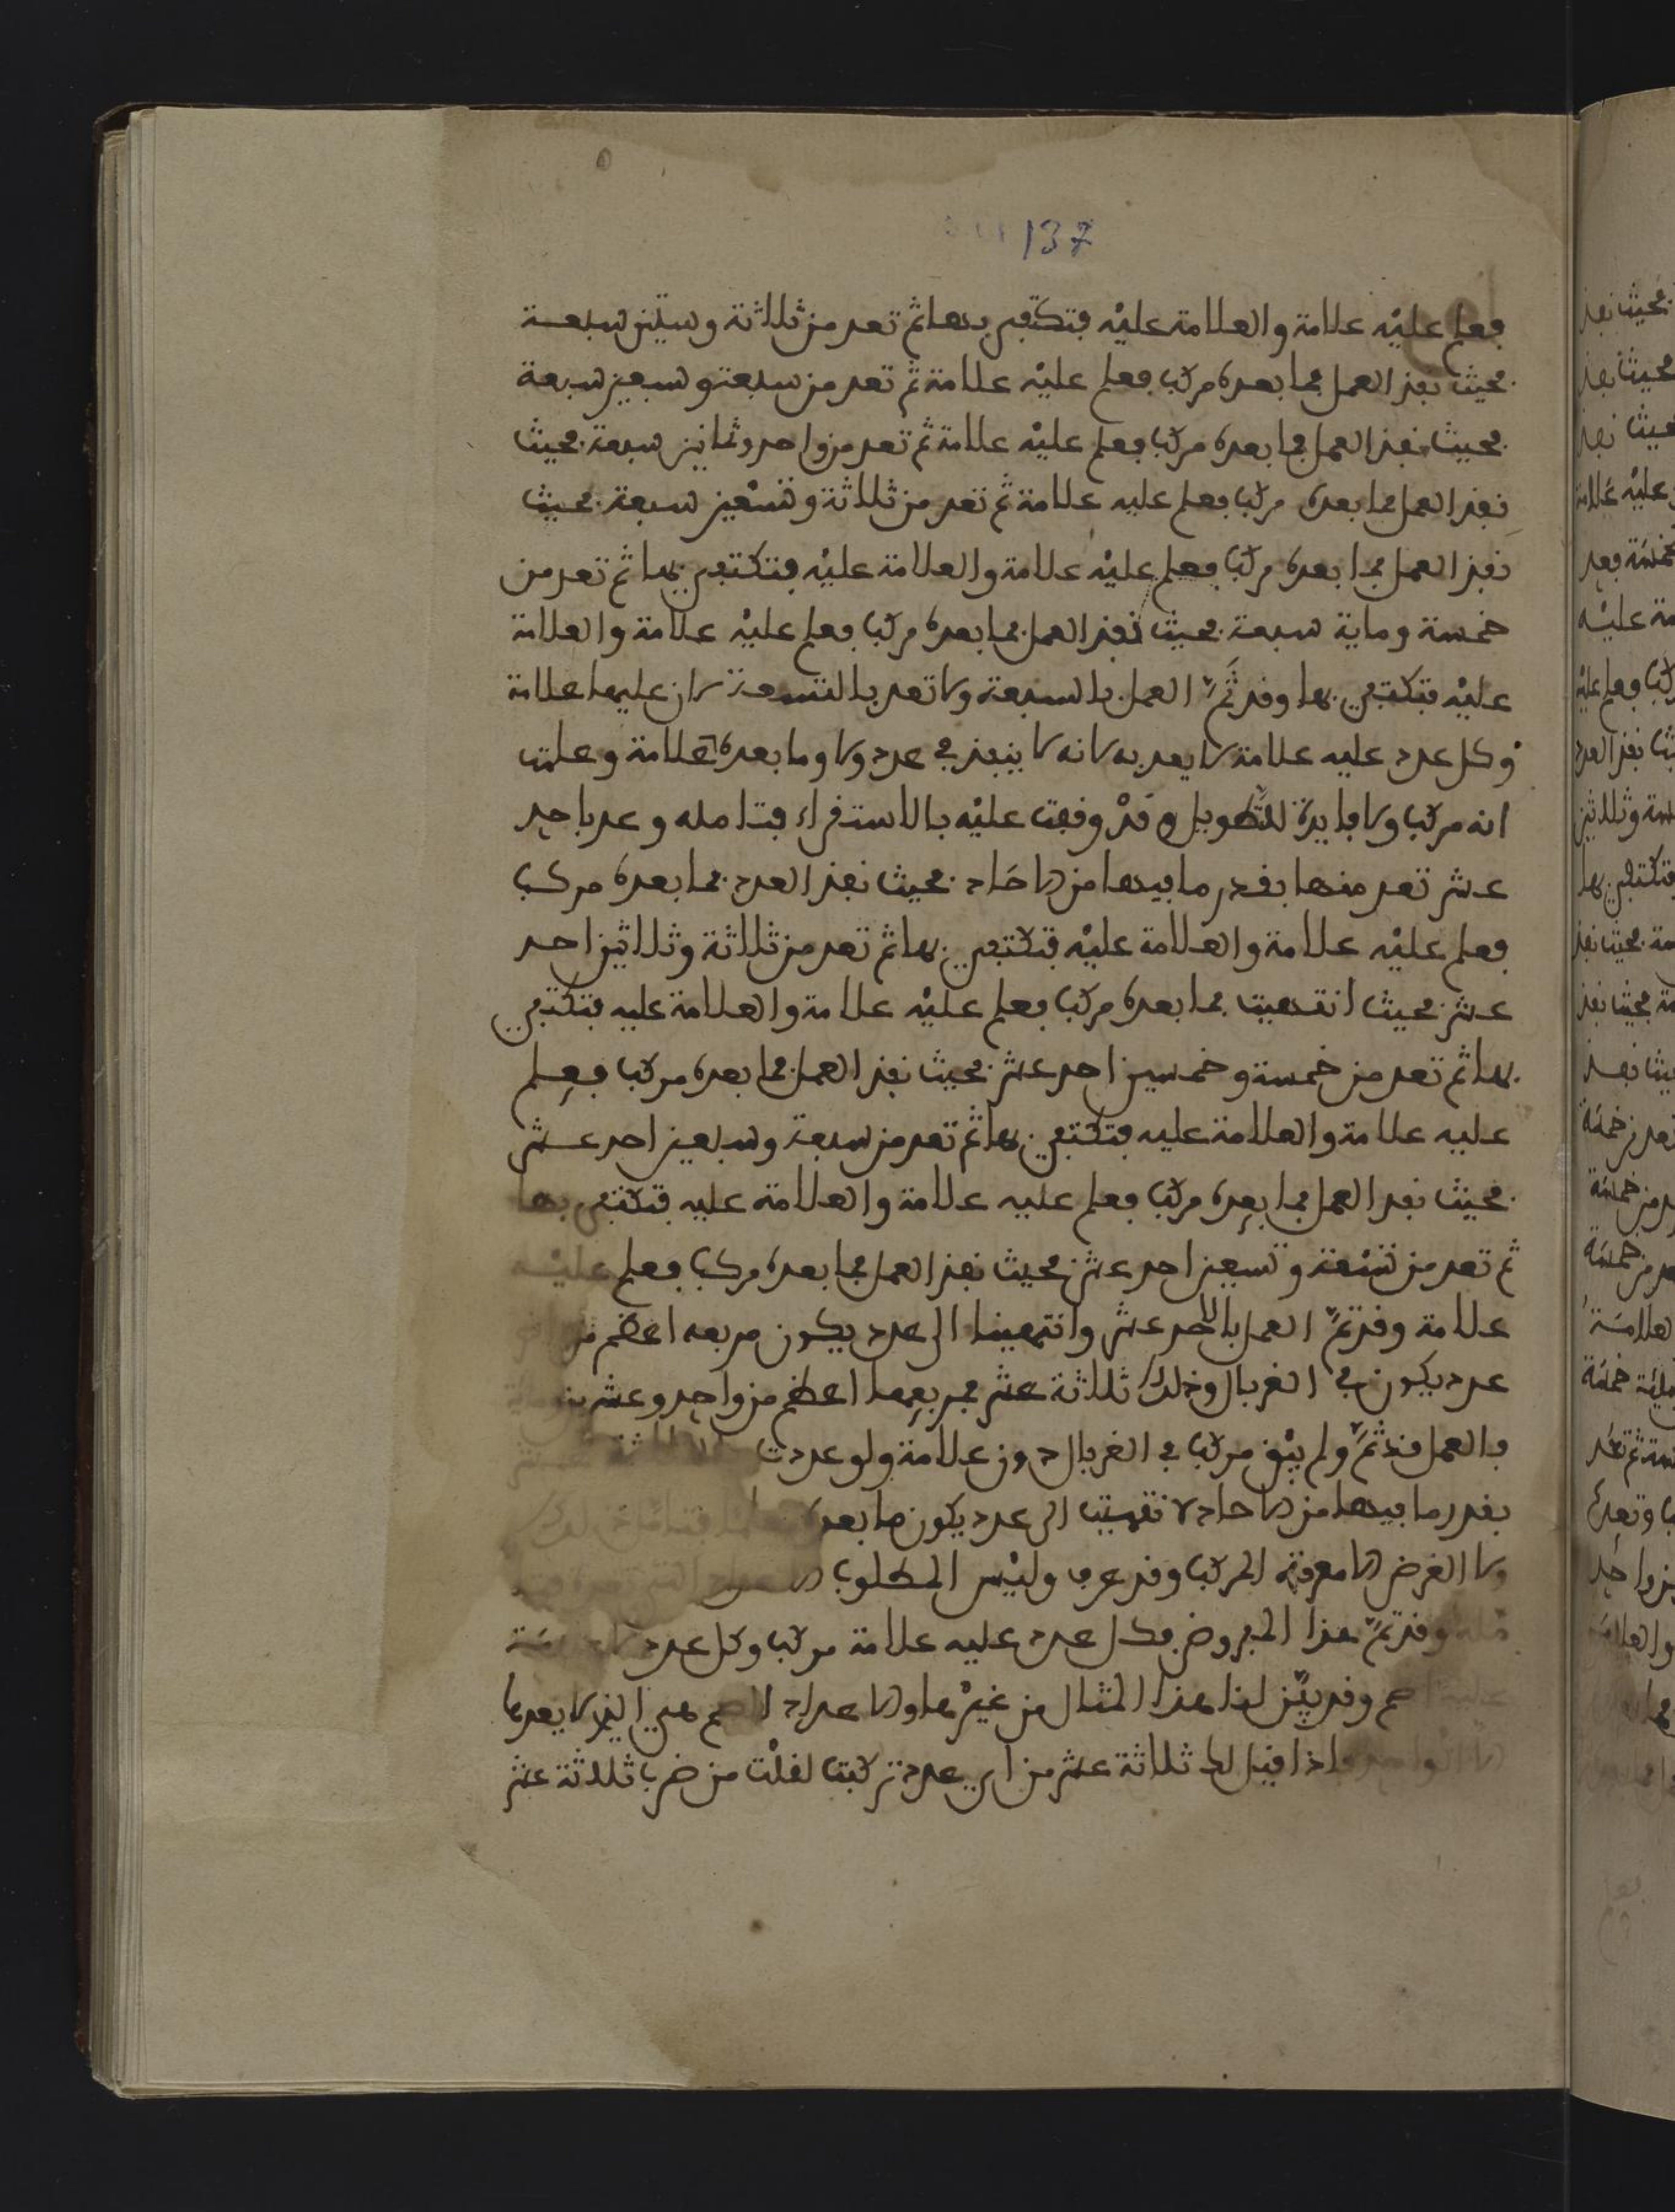 137
فعلم عليه علامة والعلامة عليه فتكتفي بها ثم تعد من ثلاثة وستين سبعة
فحيث نفذ العمل فما بعده مركب فعلم عليه علامة ثم تعد من سبعة وسبعين سبعة
فحيث نفذ العمل فما بعده مركب فعلم عليه علامة ثم تعد من واحد وثمانين سبعة فحيث
نفذ العمل فما بعده مركب فعلم عليه علامة ثم تعد من ثلاثة وتسعين سبعة فحيث
نفذ العمل فما بعده مركب فعلم عليه علامة والعلامة عليه فتكتفي بها ثم تعد من
خمسة وماية سبعة فحيث نفذ العمل فما بعده مركب فعلم عليه علامة والعلامة
عليه فتكتفي بها وقد تم العمل بالسبعة ولا تعد بالتسعة لان عليها علامة
وكل عدد عليه علامة لا يعد به لانه لا ينفذ في عدد ولا وما بعده علامة وعلمت
انه مركب ولا فايدة للتطويل وقد وقفت عليه بالاستقراء فتامله وعد باحد
عشر تعد منها بقدر ما فيها من الاحاد فحيث نفذ العدد فما بعده مركب
فعلم عليه علامة والعلامة عليه فتكتفي بها ثم تعد من ثلاثة وثلاثين احد
عشر فحيث انتهيت فما بعده مركب فعلم عليه علامة والعلامة عليه فتكتفي
بها ثم تعد من خمسة وخمسين احد عشر فحيث نفذ العمل فما بعده مركب فعلم
عليه علامة والعلامة عليه فتكتفي بها ثم تعد من سبعة وسبعين احد عشر
فحيث نفد العمل فما بعده مركب فعلم عليه علامة والعلامة عليه فتكتفي بها
ثم تعد من تسعة وتسعين احد عشر فحيث نفذ العمل فما بعده مركب فعلم عليه
علامة وقد تم العمل بالاحد عشر وانتهينا الى عدد يكون مربعه اعظم من
عدد يكون في الغربال وذلك ثلاثة عشر فمربعها اعظم من واحد وعشرين
فالعمل قد تم ولم يبق مركب في الغربال دون علامة ولو عددت
بقدر ما فيها من الاحاد لانتهيت الى عدد يكون ما بعده
ولا الغرض الا معرفة المركب وقد عرف وليس المطلوب
وقد تم هذا المفروض فكل عدد عليه علامة مركب وكل عدد
وقد بين لنا هذا المثال من غيرها والاعداد الصم هي التي لا يعدها
الا الواحد فاذا قيل لك ثلاثة عشر من اي عدد تركبت لقلت من ضرب ثلاثة عشر